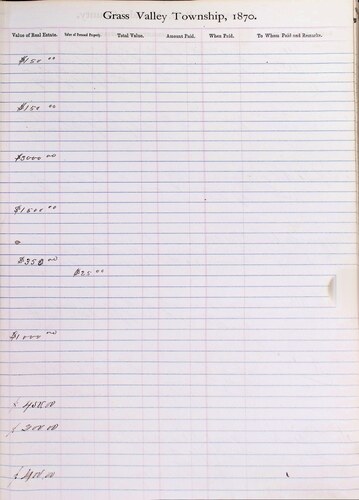 Grass Valley Township, 1870.
Value of Real Estate. Value of Personal Property. Total Value. Amount Paid. When Paid. To Whom Paid and Remarks.
$150 00
$150 00
$3000 00
$1500 00
$350 00
$25 00
$1000 00
200.00
400.00